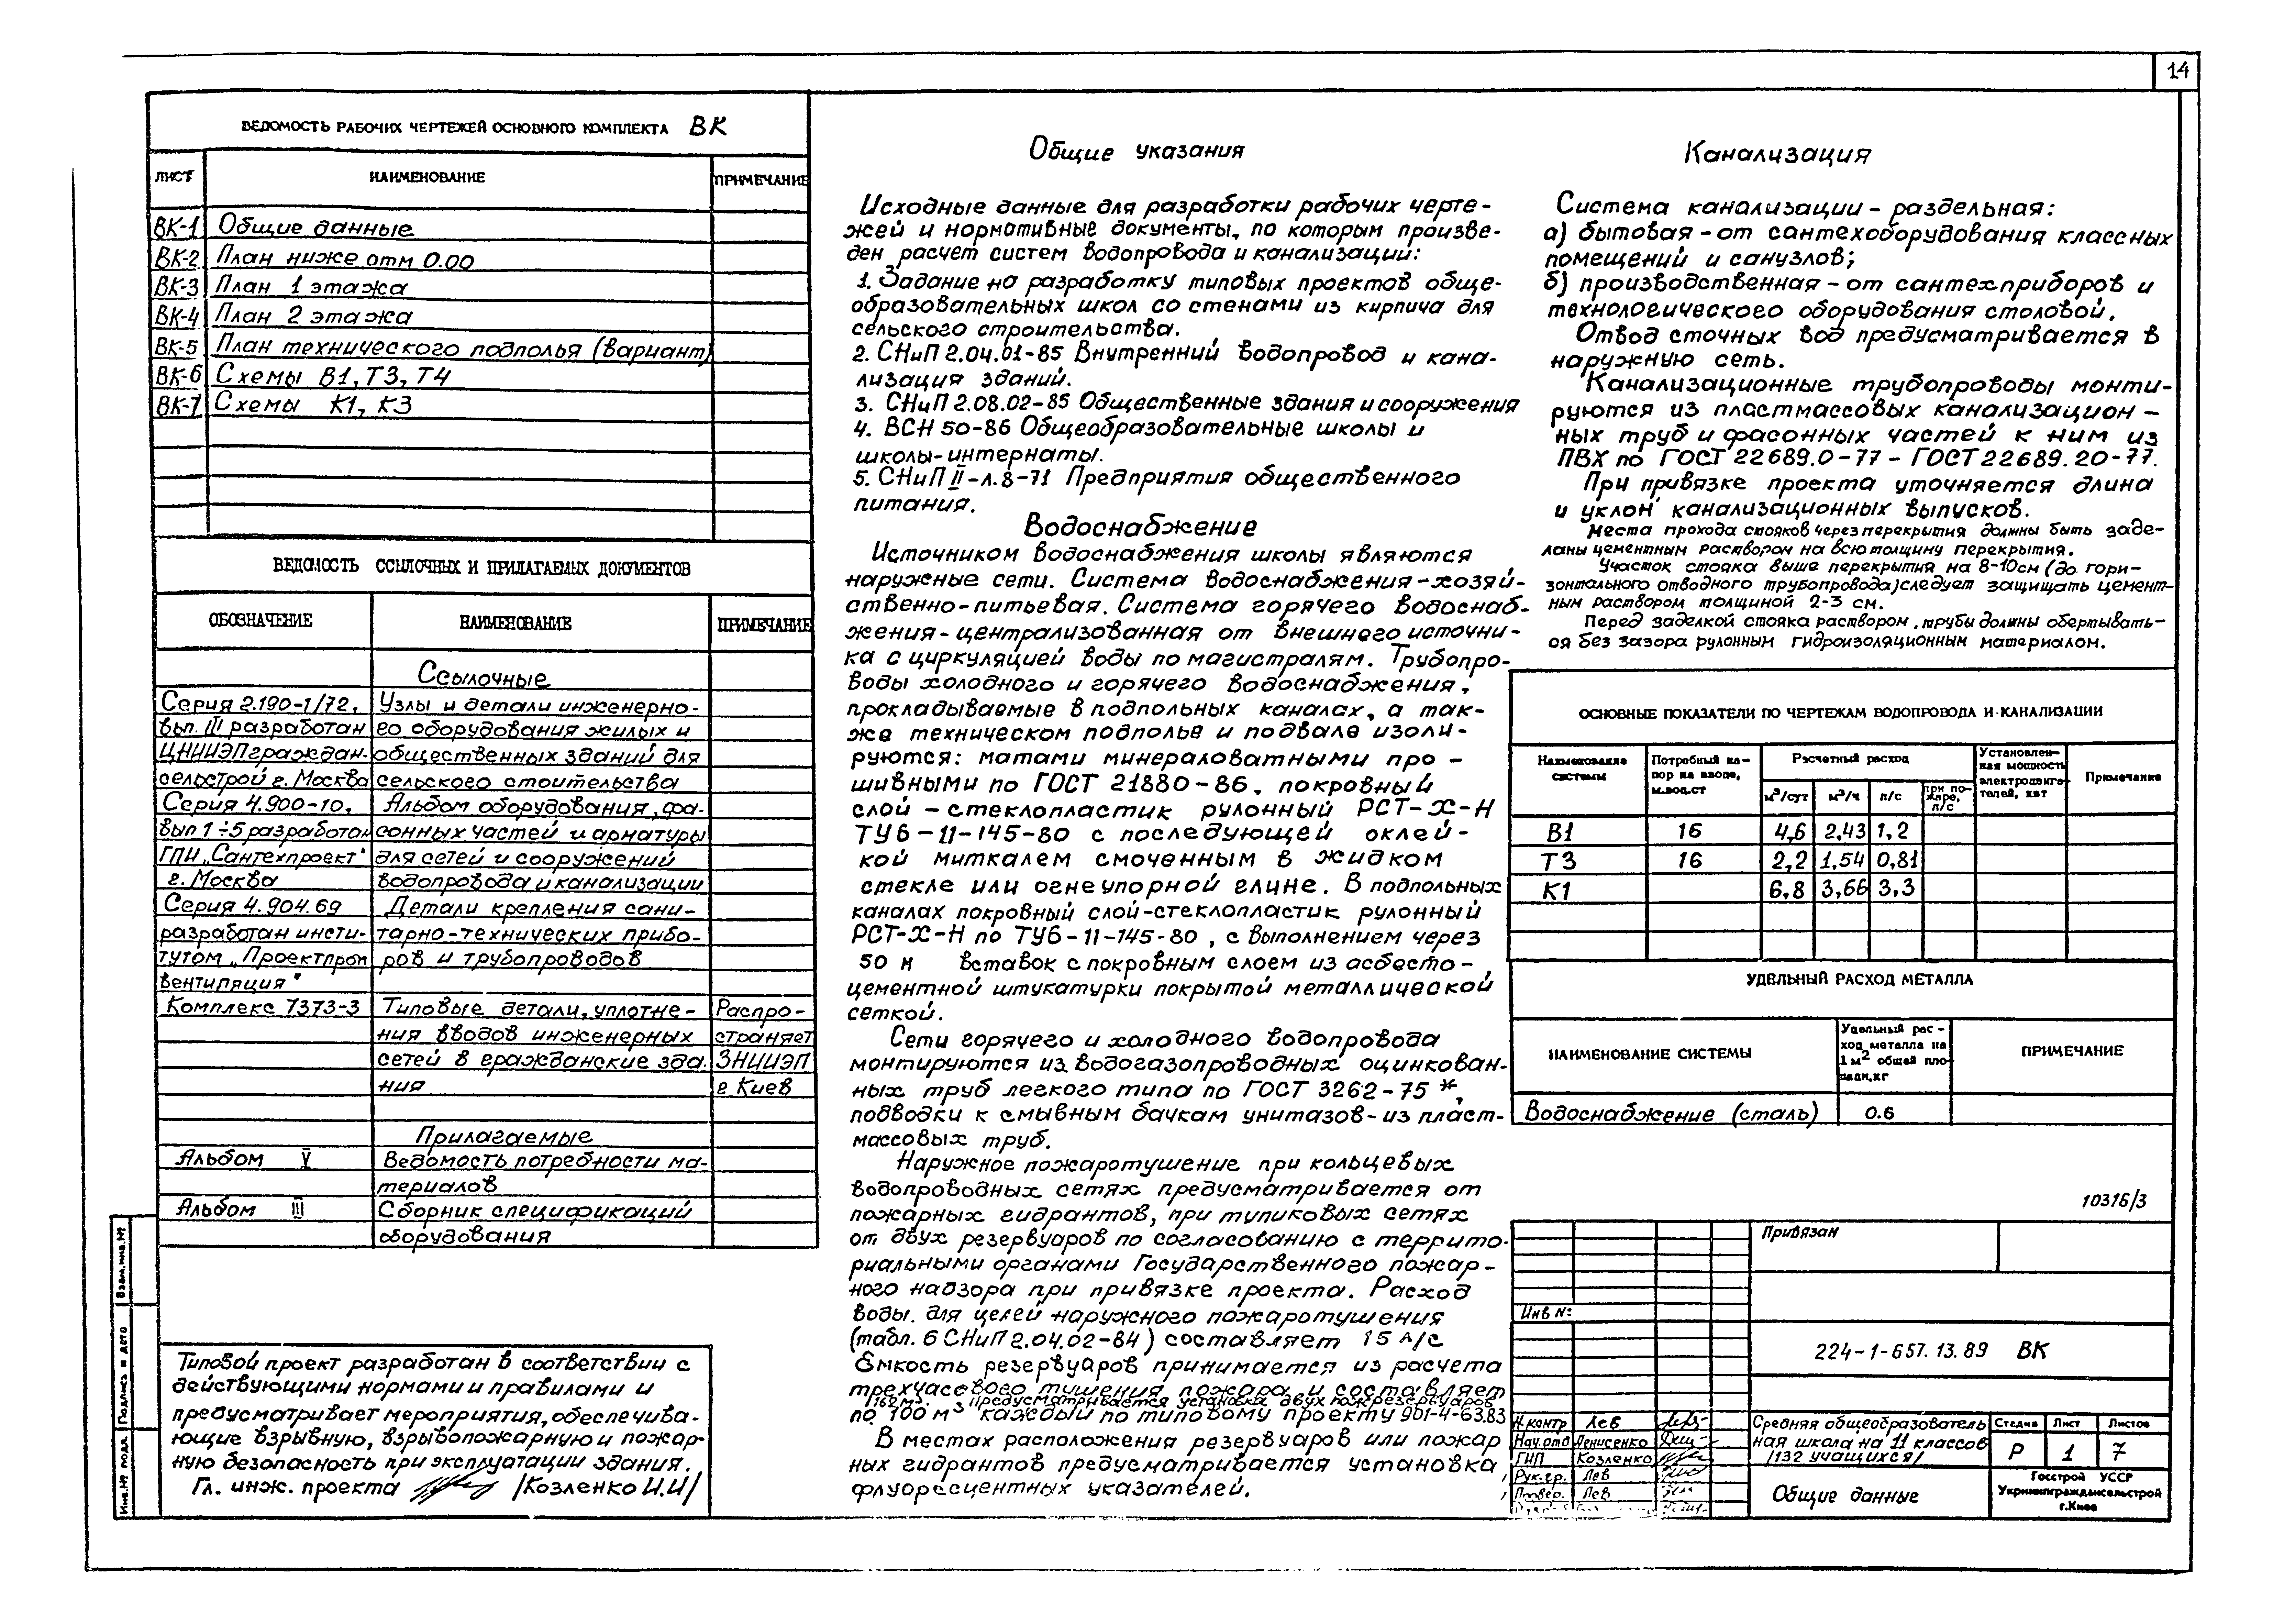 14
ВЕДОМОСТЬ РАБОЧИХ ЧЕРТЕЖЕЙ ОСНОВНОГО КОМПЛЕКТА ВК
ЛИСТ НАИМЕНОВАНИЕ ПРИМЕЧАНИЕ
ВК-1 Общие данные
ВК-2 План ниже отм 0.00
ВК-3 План 1 этажа
ВК-4 План 2 этажа
ВК-5 План технического подполья (вариант)
ВК-6 Схемы В1, Т3, Т4
ВК-7 Схемы К1, К3
ВЕДОМОСТЬ ССЫЛОЧНЫХ И ПРИЛАГАЕМЫХ ДОКУМЕНТОВ
ОБОЗНАЧЕНИЕ НАИМЕНОВАНИЕ ПРИМЕЧАНИЕ
Ссылочные
Серия 2.190-1/72, Узлы и детали инженерно-
вып. III разработан го оборудования жилых и
ЦНИИЭПграждан- общественных зданий для
сельстрой г. Москва сельского стоительства
Серия 4.900-10, Альбом оборудования, фа-
вып 1÷5 разработан сонных частей и арматуры
ГПИ „Сантехпроект" для сетей и сооружений
г. Москва водопровода и канализации
Серия 4.904.69 Детали крепления сани-
разработан инсти- тарно-технических прибо-
тутом „Проектпром ров и трубопроводов
вентиляция"
Комплекс 7373-3 Типовые детали, уплотне- Распро-
ния вводов инженерных страняет
сетей в гражданские зда. ЗНИИЭП
ния г Киев
Прилагаемые
Альбом V Ведомость потребности ма-
териалов
Альбом III Сборник спецификаций
оборудования
Типовой проект разработан в соответствии с
действующими нормами и правилами и
предусматривает мероприятия, обеспечива-
ющие взрывную, взрывопожарную и пожар-
ную безопасность при эксплуатации здания.
Гл. инж. проекта /Козленко И.И/
Взам.инв.№
Подпись и дата
Инв.№ подл.
Общие указания
Исходные данные для разработки рабочих черте-
жей и нормативные документы, по которым произве-
ден расчет систем водопровода и канализации:
1. Задание на разработку типовых проектов обще-
образовательных школ со стенами из кирпича для
сельского строительства.
2. СНиП 2.04.01-85 Внутренний водопровод и кана-
лизация зданий.
3. СНиП 2.08.02-85 Общественные здания и сооружения
4. ВСН 50-86 Общеобразовательные школы и
школы-интернаты.
5. СНиП II-л.8-71 Предприятия общественного
питания.
Водоснабжение
Источником водоснабжения школы являются
наружные сети. Система водоснабжения-хозяй-
ственно-питьевая. Система горячего водоснаб-
жения-централизованная от внешнего источни-
ка с циркуляцией воды по магистралям. Трубопро-
воды холодного и горячего водоснабжения,
прокладываемые в подпольных каналах, а так-
же техническом подполье и подвале изоли-
руются: матами минераловатными про-
шивными по ГОСТ 21880-86, покровный
слой - стеклопластик рулонный РСТ-Х-Н
ТУ6-11-145-80 с последующей оклей-
кой миткалем смоченным в жидком
стекле или огнеупорной глине. В подпольных
каналах покровный слой-стеклопластик рулонный
РСТ-Х-Н по ТУ6-11-145-80, с выполнением через
50 м вставок с покровным слоем из асбесто-
цементной штукатурки покрытой металлической
сеткой.
Сети горячего и холодного водопровода
монтируются из водогазопроводных оцинкован-
ных труб легкого типа по ГОСТ 3262-75*,
подводки к смывным бачкам унитазов-из пласт-
массовых труб.
Наружное пожаротушение при кольцевых
водопроводных сетях предусматривается от
пожарных гидрантов, при тупиковых сетях
от двух резервуаров по согласованию с террито-
риальными органами Государственного пожар-
ного надзора при привязке проекта. Расход
воды для целей наружного пожаротушения
(табл. 6 СНиП 2.04.02-84) составляет 15 л/с
Емкость резервуаров принимается из расчета
трехчасового тушения пожара и составляет
162 м³. Предусматривается установка двух пожрезервуаров
по 100 м³ каждый по типовому проекту 901-4-63.83
В местах расположения резервуаров или пожар
ных гидрантов предусматривается установка
флуоресцентных указателей.
Канализация
Система канализации - раздельная:
а) бытовая - от сантехоборудования классных
помещений и санузлов;
б) производственная - от сантехприборов и
технологического оборудования столовой.
Отвод сточных вод предусматривается в
наружную сеть.
Канализационные трубопроводы монти-
руются из пластмассовых канализацион-
ных труб и фасонных частей к ним из
ПВХ по ГОСТ 22689.0-77 - ГОСТ 22689.20-77.
При привязке проекта уточняется длина
и уклон канализационных выпусков.
Места прохода стояков через перекрытия должны быть заде-
ланы цементным раствором на всю толщину перекрытия.
Участок стояка выше перекрытия на 8-10см (до гори-
зонтального отводного трубопровода) следует защищать цемент-
ным раствором толщиной 2-3 см.
Перед заделкой стояка раствором, трубы должны обертывать-
ся без зазора рулонным гидроизоляционным материалом.
ОСНОВНЫЕ ПОКАЗАТЕЛИ ПО ЧЕРТЕЖАМ ВОДОПРОВОДА И КАНАЛИЗАЦИИ
Наименование системы Потребный на-пор на вводе, м.вод.ст Расчетный расход Установлен-ная мощность электродвига-телей, квт Примечание
м³/сут м³/ч л/с при по-жаре, л/с
В1 16 4,6 2,43 1,2
Т3 16 2,2 1,54 0,81
К1 6,8 3,66 3,3
УДЕЛЬНЫЙ РАСХОД МЕТАЛЛА
НАИМЕНОВАНИЕ СИСТЕМЫ Удельный рас-ход металла на 1 м² общей пло-щади,кг ПРИМЕЧАНИЕ
Водоснабжение (сталь) 0.6
10316/3
Привязан
Инв №:
224-1-657.13.89 ВК
Н.контр Лев
Нач.отд Денисенко
ГИП Козленко
Рук.гр. Лев
Провер. Лев
Средняя общеобразователь
ная школа на 11 классов
/132 учащихся/
Стадия Лист Листов
Р 1 7
Общие данные
Госстрой УССР
Укрниипграждансельстрой
г.Киев